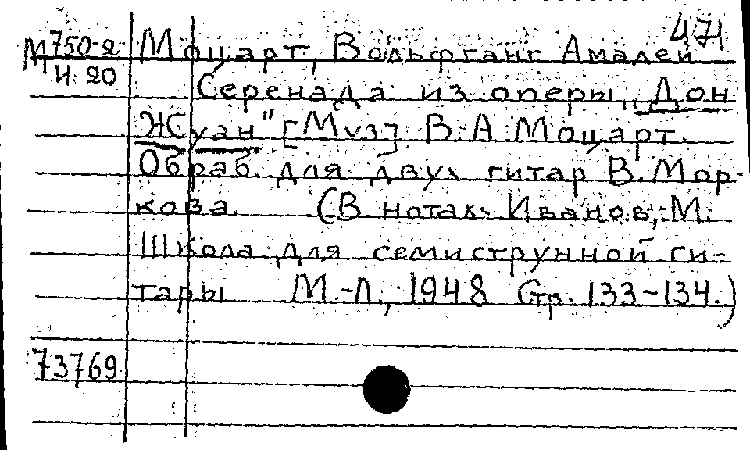 471
М 750-2
И. 20
Моцарт, Вольфганг Амадей
Серенада из оперы „Дон
Жуан" [Муз] В.А. Моцарт.
Обраб. для двух гитар В. Мар-
кова. (В нотах: Иванов, М.
Школа для семиструнной ги-
тары М.-Л., 1948 Стр. 133-134.)
73769